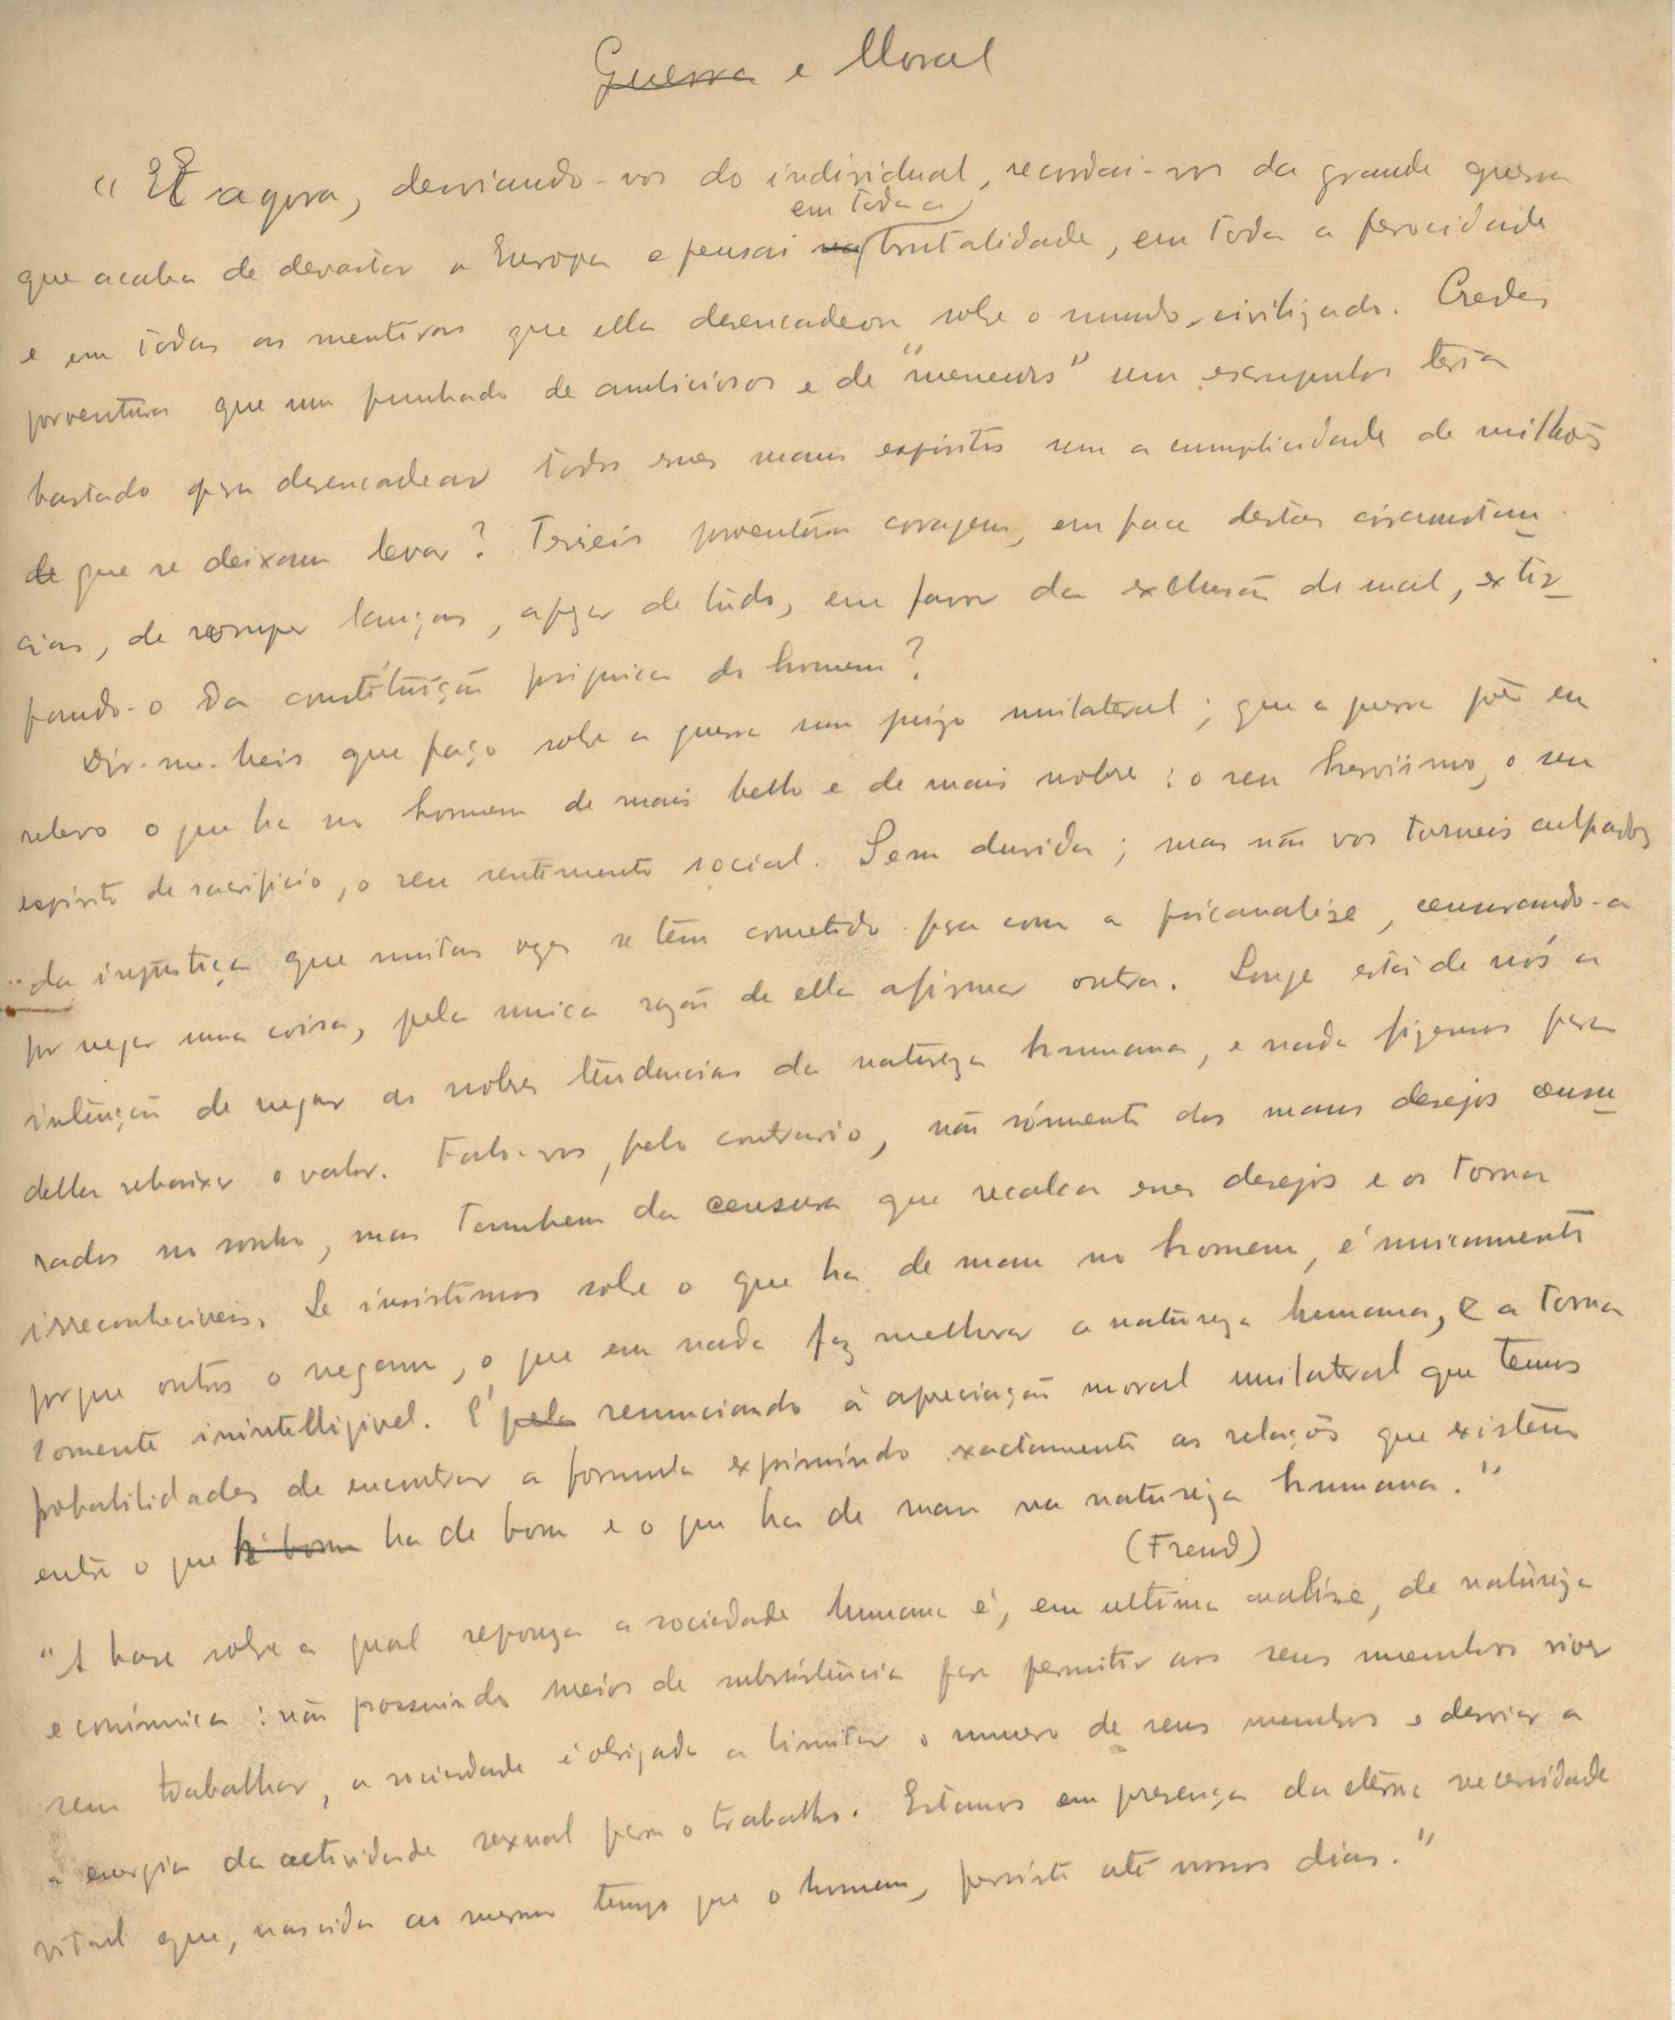 Guerra e Moral
"E agora, desviando-vos do individual, recordai-vos da grande guerra
em toda a
que acaba de devastar a Europa e pensai na brutalidade, em toda a ferocidade
e em todas as mentiras que ella desencadeou sobre o mundo civilizado. Credes
porventura que um punhado de ambiciosos e de "meneurs" sem escrupulos teria
bastado para desencadear todos esses maus espiritos sem a cumplicidade de milhões
de que se deixam levar? Terieis porventura coragem, em face destas circumstan-
cias, de romper lanças, apezar de tudo, em favor da exclusão do mal, extir-
pando-o da constituição psiquica do homem?
Dir-me-heis que faço sobre a guerra um juizo unilateral; que a guerra põe em
relevo o que ha no homem de mais bello e de mais nobre: o seu heroismo, o seu
espirito de sacrificio, o seu sentimento social. Sem duvida; mas não vos torneis culpados
da injustiça que muitas vezes se tem cometido para com a psicanalise, censurando-a
por negar uma coisa, pela unica razão de ella afirmar outra. Longe está de nós a
intenção de negar as nobres tendencias da natureza humana, e nada fizemos para
dellas rebaixar o valor. Falo-vos, pelo contrario, não sómente dos maus desejos censu-
rados no sonho, mas tambem da censura que recalca esses desejos e os torna
irreconheciveis. Se insistimos sobre o que ha de mau no homem, é unicamente
porque outros o negam, o que em nada faz melhorar a natureza humana, e a torna
somente inintelligivel. É pela renunciando á apreciação moral unilateral que temos
probabilidades de encontrar a formula exprimindo exactamente as relações que existem
entre o que é bom ha de bom e o que ha de mau na natureza humana."
(Freud)
"A base sobre a qual repousa a sociedade humana é, em ultima analise, de natureza
económica: não possuindo meios de subsistencia para permitir aos seus membros viver
sem trabalhar, a sociedade é obrigada a limitar o numero de seus membros e desviar a
a energia da actividade sexual para o trabalho. Estamos em presença da eterna necessidade
vital que, nascida ao mesmo tempo que o homem, persiste até nossos dias."